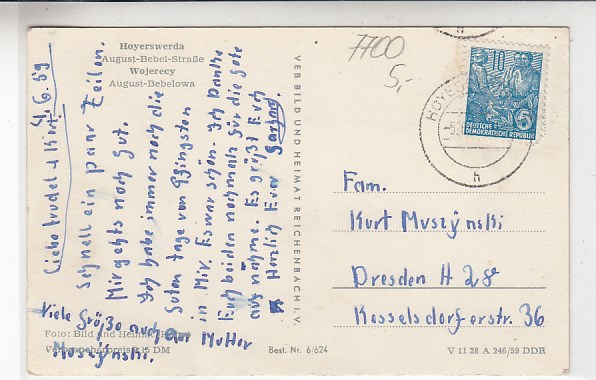 Hoyerswerda
August-Bebel-Straße
Wojerecy
August-Bebelowa
4.6.59
Liebe Trudel u Kurt
Schnell ein paar Zeilen.
Mir gehts noch gut.
Ich habe immer noch die
Guten tage von Pfingsten
in Mir. Es war schön. Ich Danke
Euch beiden nochmals für die Gute
aufnahme. Es grüßt Euch
Herzlich Euer Gerhard.
Viele Grüße auch an Mutter
Muszynski.
Foto: Bild und Heimat
Verbraucherpreis 0,15 DM
Best. Nr. 6/624
VEB BILD UND HEIMAT REICHENBACH i. V.
7700
5,-
10
DEUTSCHE
DEMOKRATISCHE REPUBLIK
5
HOYER
h
Fam.
Kurt Muszÿnski
Dresden A 28
Kesselsdorferstr. 36
V 11 28 A 246/59 DDR